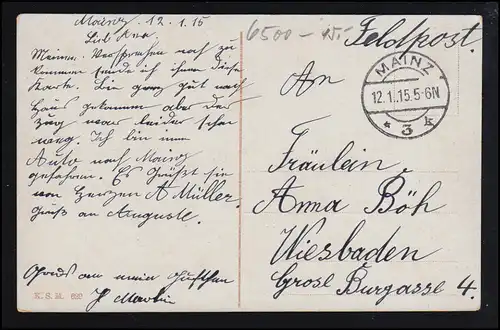 Mainz 12.1.15
Lieb Anna.
Meinem Versprechen nach zu
kommen sende ich ihnen diese
Karte. Bin ganz gut nach
Haus gekommen aber der
Zug war leider schon
weg. Ich bin im
Auto nach Mainz
gefahren. Es Grüßt sie
von Herzen A Müller.
Gruß an Auguste.
Gruß an mein
H Martin
K. S. M. 692
6500 - 45.-
Feldpost.
MAINZ
12.1.15.5-6N
* 3 k
An
Fräulein
Anna Böh
Wiesbaden
Grose Burgasse 4.